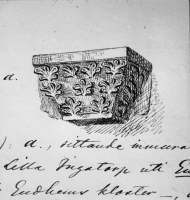 a.
). a., sittande inmura
Lilla Ingatorp uti
Gudhems kloster —,